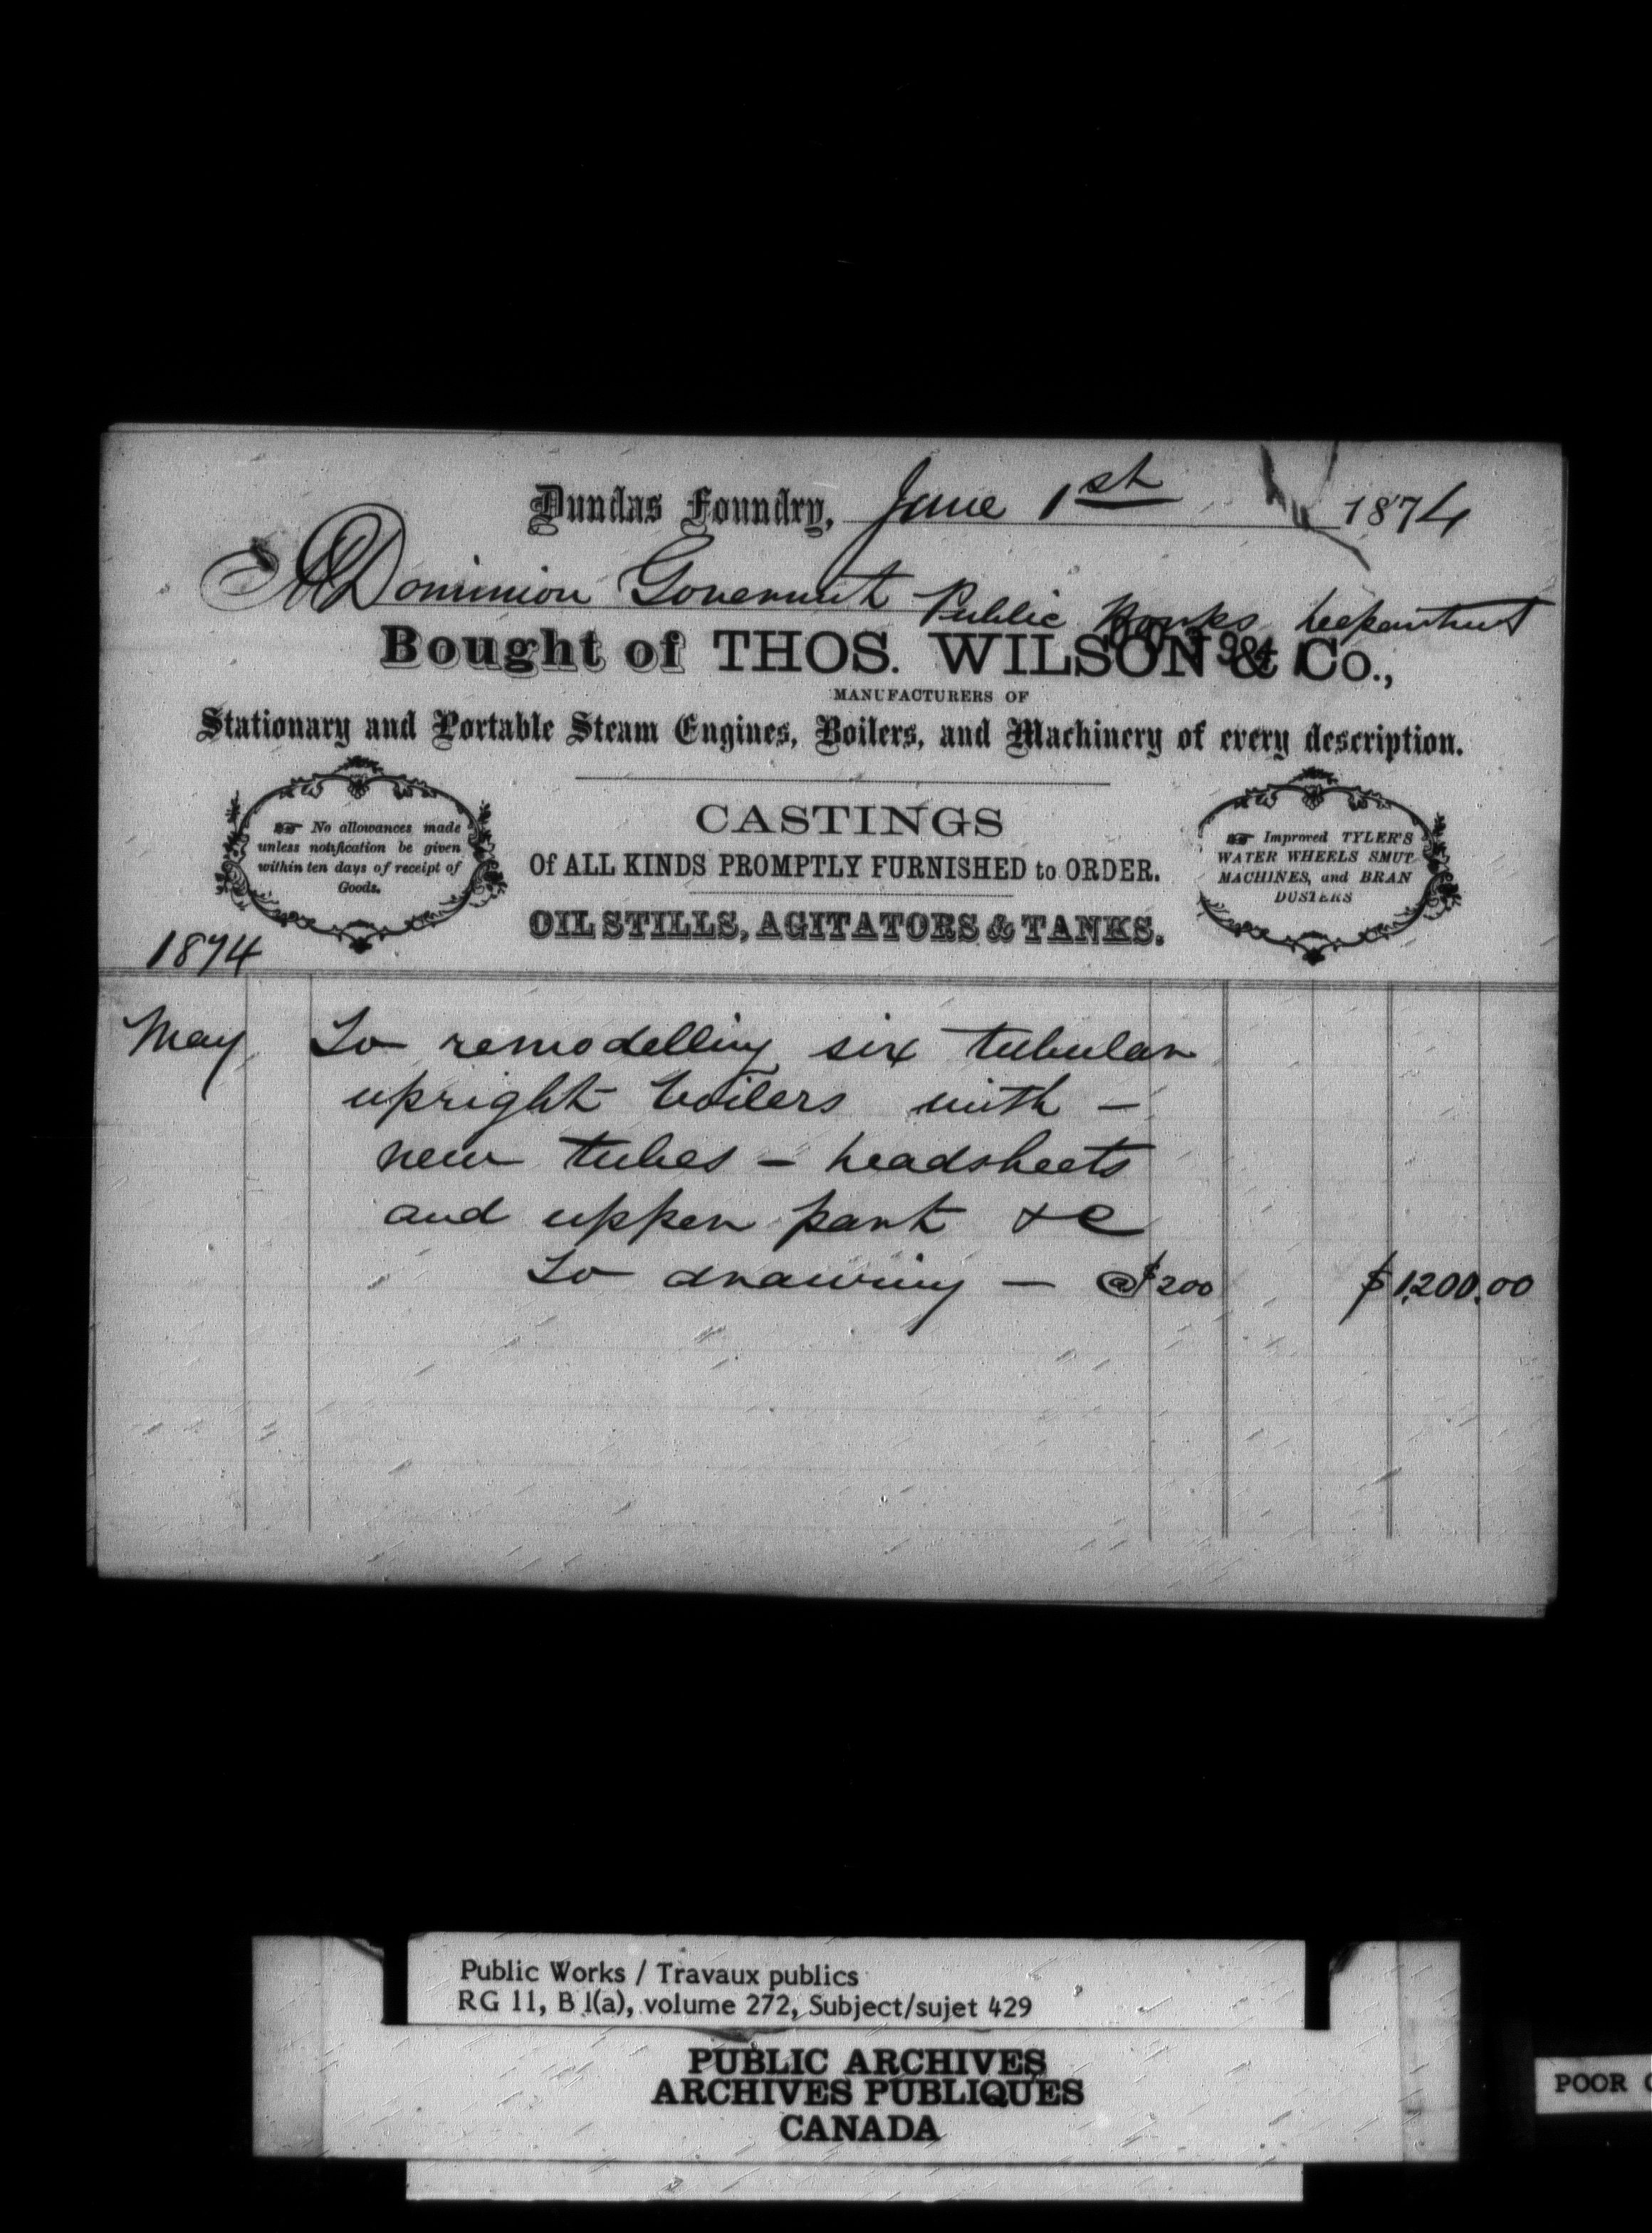 Dundas Foundry, June 1st 1874
Dominion Government Public Works Department
Bought of THOS. WILSON & Co.,
MANUFACTURERS OF
Stationary and Portable Steam Engines, Boilers, and Machinery of every description.
No allowances made
unless notification be given
within ten days of receipt of
Goods.
CASTINGS
Of ALL KINDS PROMPTLY FURNISHED to ORDER.
OIL STILLS, AGITATORS & TANKS.
Improved TYLER'S
WATER WHEELS SMUT
MACHINES, and BRAN
DUSTERS
1874
May To remodelling six tubular
upright boilers with —
new tubes – headsheets
and upper part &c
To drawing — @ $200 $1,200.00
Public Works / Travaux publics
RG 11, B 1(a), volume 272, Subject/sujet 429
PUBLIC ARCHIVES
ARCHIVES PUBLIQUES
CANADA
POOR